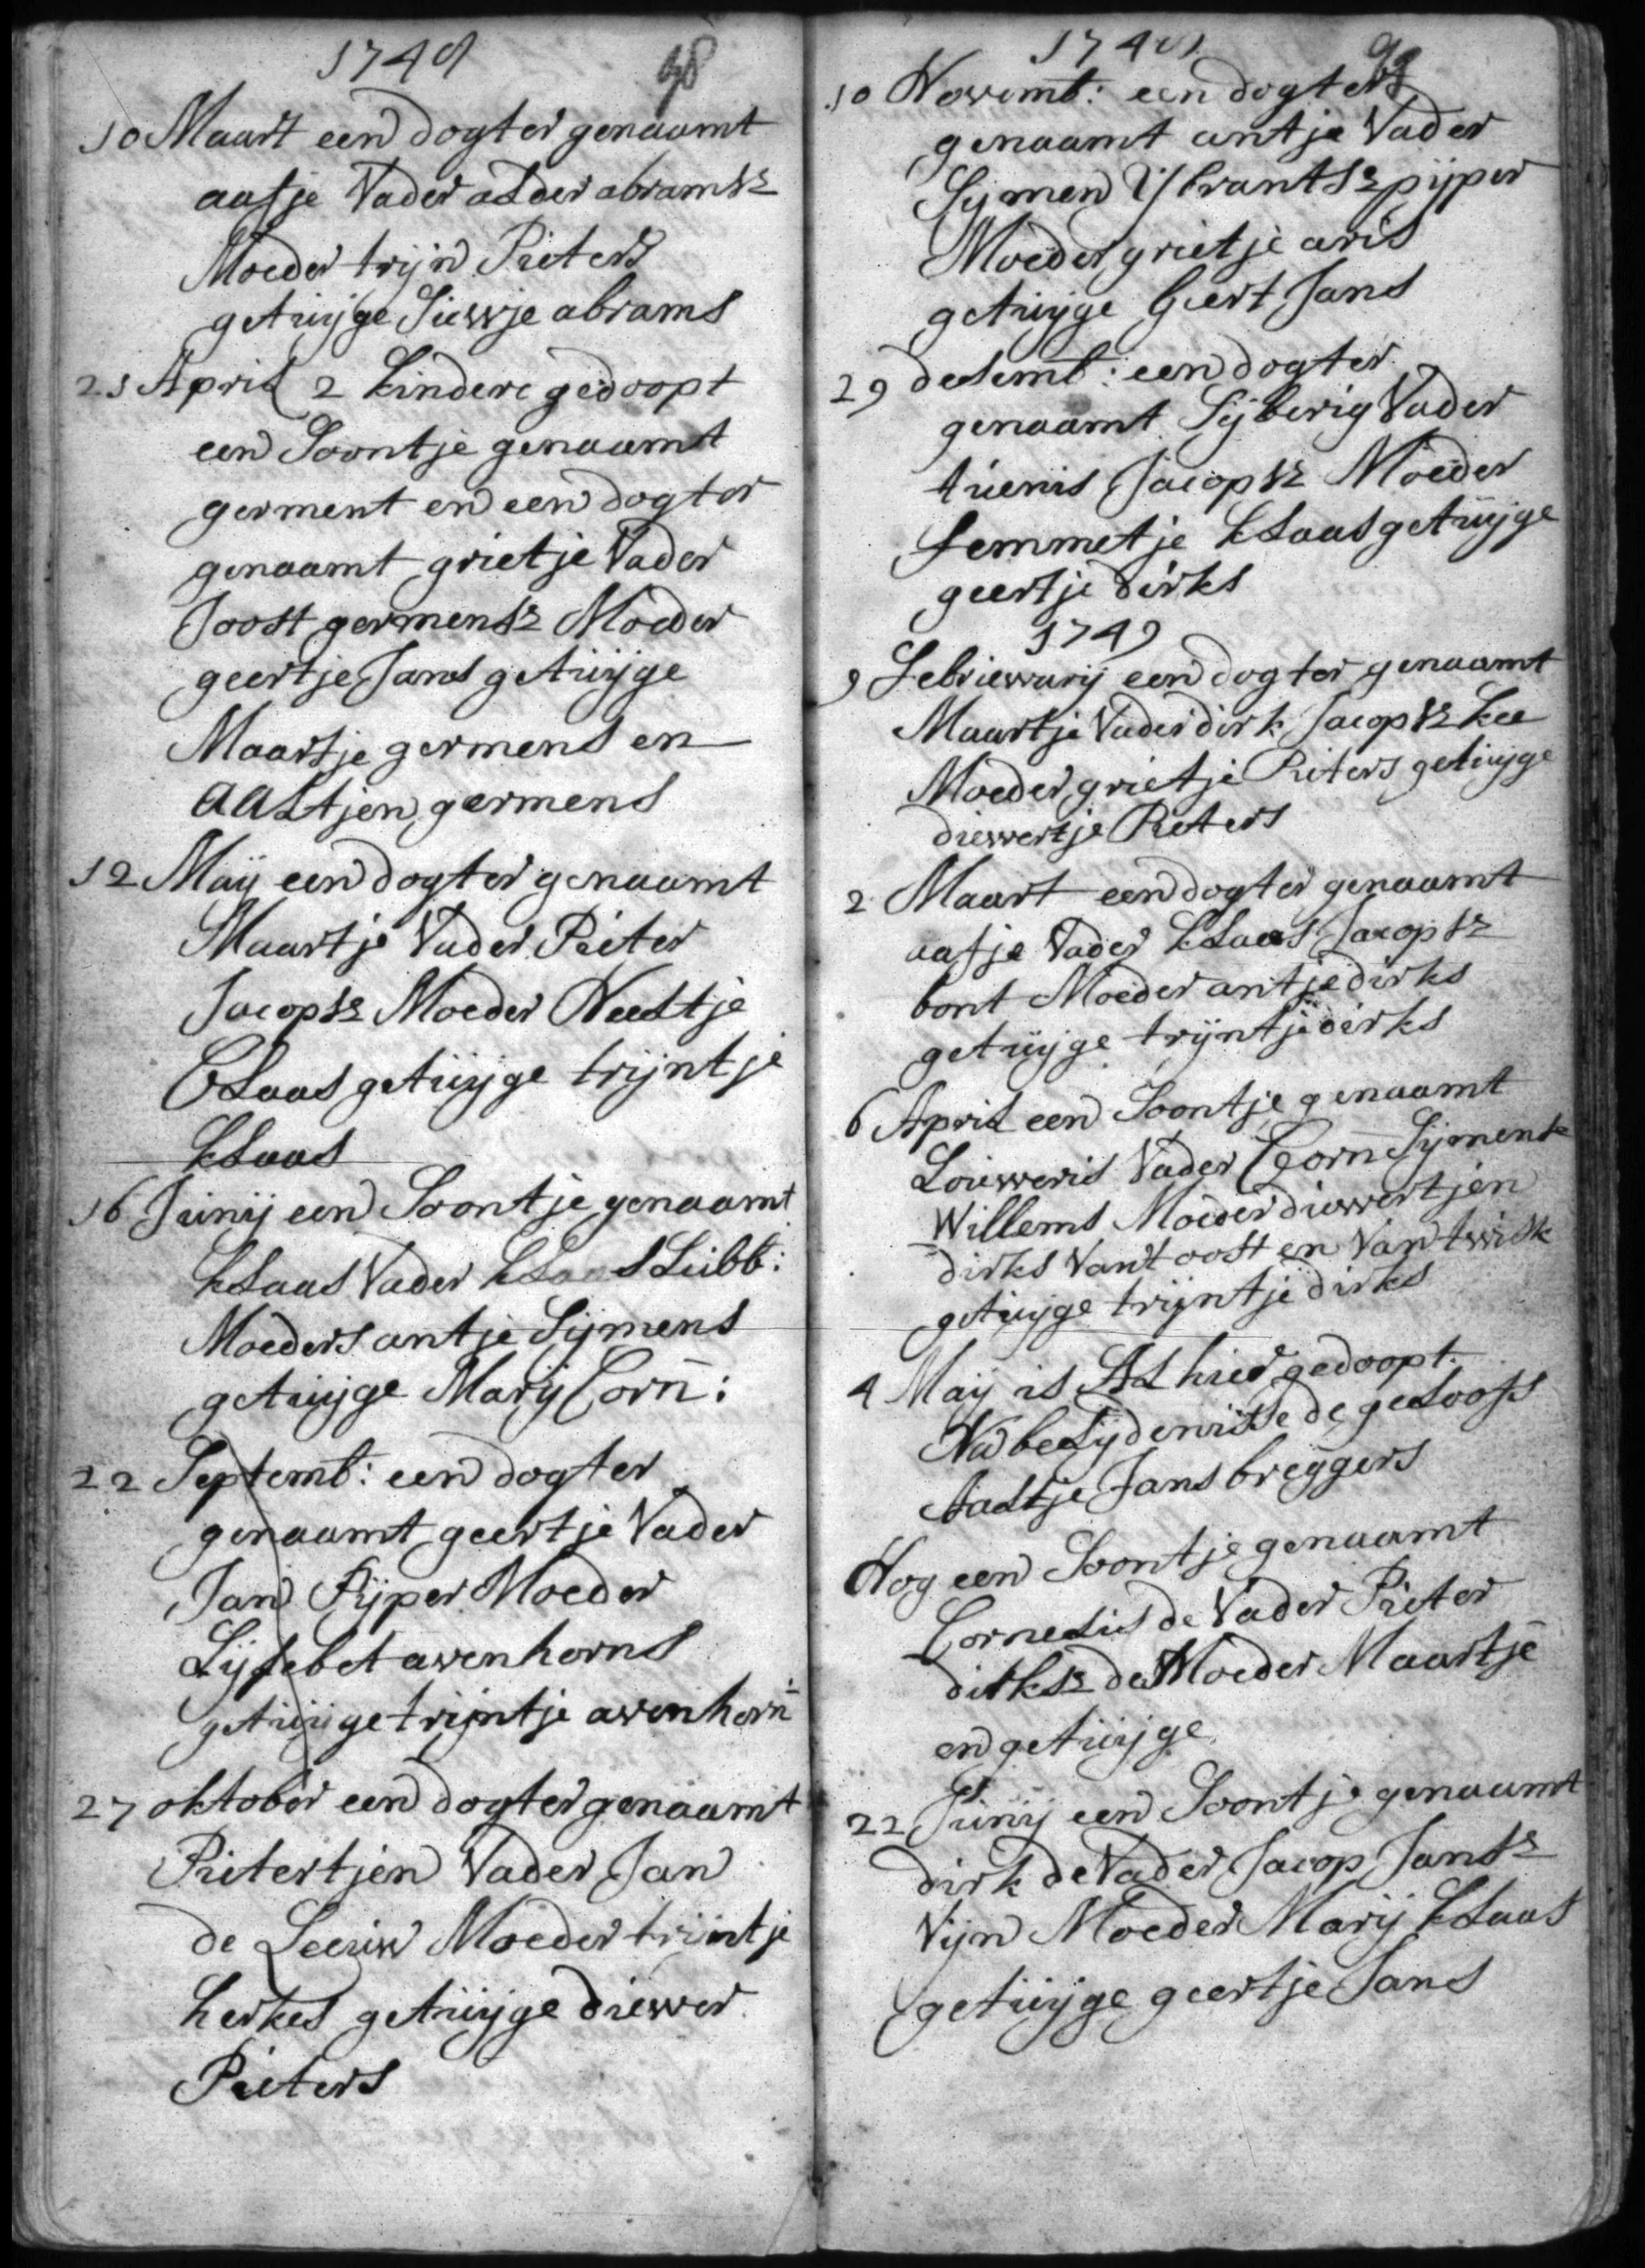 1748
98
10 Maart een dogter genaamt
aafje Vader alder abramsz
Moeder trijn Pieters
getuijge Siewje abrams
21 April 2 kindere gedoopt
een Soontje genaamt
germent en een dogter
genaamt grietje Vader
Joost germensz Moeder
geertje Jans getuijge
Maartje germens en
aaltjen germens
12 Maij een dogter genaamt
Maartje Vader Pieter
Jacopsz Moeder Neeltje
Claas getuijge trijntje
klaas
16 Junij een Soontje genaamt
klaas Vader klaas Lubb:
Moeders antje Sijmens
getuijge Marij Corn:
22 Septemb: een dogter
genaamt geertje Vader
Jan Pijper Moeder
Lijsebet avenhorns
getuijge trijntje avenhorn
27 oktober een dogter genaamt
Pietertjen Vader Jan
de Leeuw Moeder trijntje
herkes getuijge diewer
Pieters
1748
99
10 Novemb: een dogter
genaamt antje Vader
Sijmen IJbrantsz pijper
Moeder grietje aris
getuijge Geert Jans
29 desemb: een dogter
genaamt Sijberig Vader
tuenis Jacopsz Moeder
femmetje klaas getuijge
geertje dirks
1749
9 Febriewarij een dogter genaamt
Maartje Vader dirk Jacopsz kee
Moeder grietje Pieters getuijge
diewertje Pieters
2 Maart een dogter genaamt
aafje Vader klaas Jacopsz
bont Moeder antje dirks
getuijge trijntje dirks
6 April een Soontje genaamt
Louweris Vader Corn Sijmensz
Willems Moeder diewertjen
dirks Vant oost en Van twisk
getuijge trijntje dirks
4 Maij is Al hier gedoopt
Na belijdenisse de geloofs
Aaltje Jans breggers
Nog een Soontje genaamt
Cornelis de Vader Pieter
dirksz de Moeder Maartje
en getuijge
22 Junij een Soontje genaamt
dirk de Vader Jacop Jansz
Vijn Moeder Marij klaas
getuijge geertje Jans